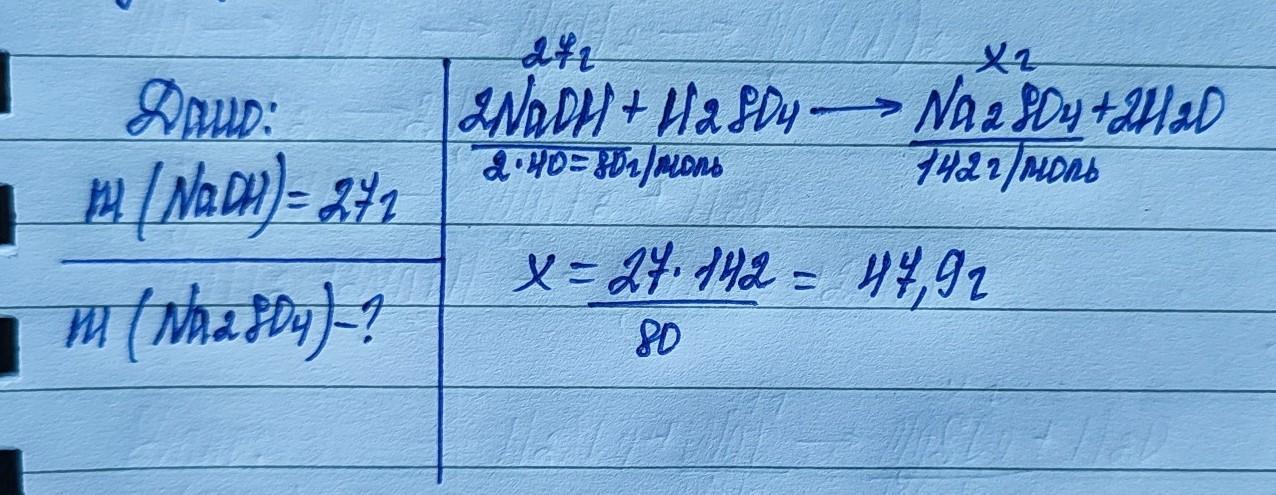 Дано:
m (NaOH) = 27г
m (Na2SO4) - ?
27г xг
2NaOH + H2SO4 → Na2SO4 + 2H2O
2·40=80г/моль 142г/моль
x = 27·142 = 47,9г
80